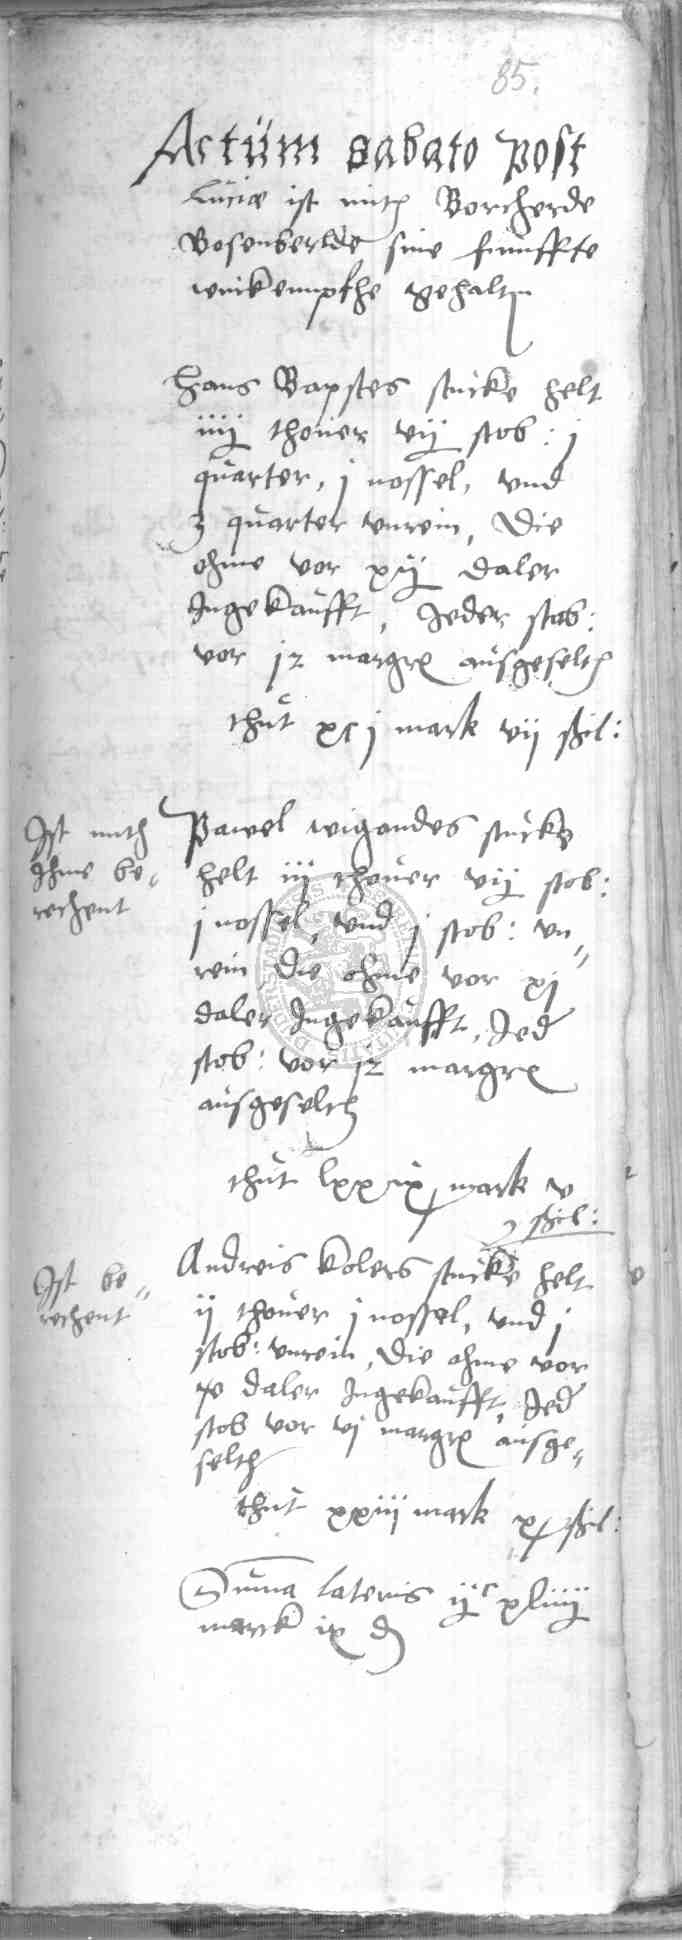 85.
Actum sabato post
Luciæ ist mith Borcherde
Bosenberkde sine funffte
winkempfhe gehaltn
Hans Bapstes stucke helt
iiij thouer vij stob: j
quarter, j nossel, vnd
3 quarter vnrein, Die
ohme vor xij daler
Ingekaufft, Jeder stob:
vor 12 margrn ausgeseltn
thut xcj mark vij ßil:
Ist mith
Ihme be„
rechent
Pawel wigandes stucke
helt iij thouer vij stob:
j nossel, vnd j stob: vn„
rein, Die ohme vor xj
daler Ingekaufft, Jed
stob: vor 12 margrn
ausgeselth
thut mark v
ßil:
Ist be„
rechent
Andreis Kolers stucke helt
ij thouer j nossel, vnd j
stob: vnrein, Die ohme vor
daler Ingekaufft, Jed
stob vor vj margrn ausge„
selth
thut xxiij mark ßil:
Suma lateris ijc xliiij
marck ix d